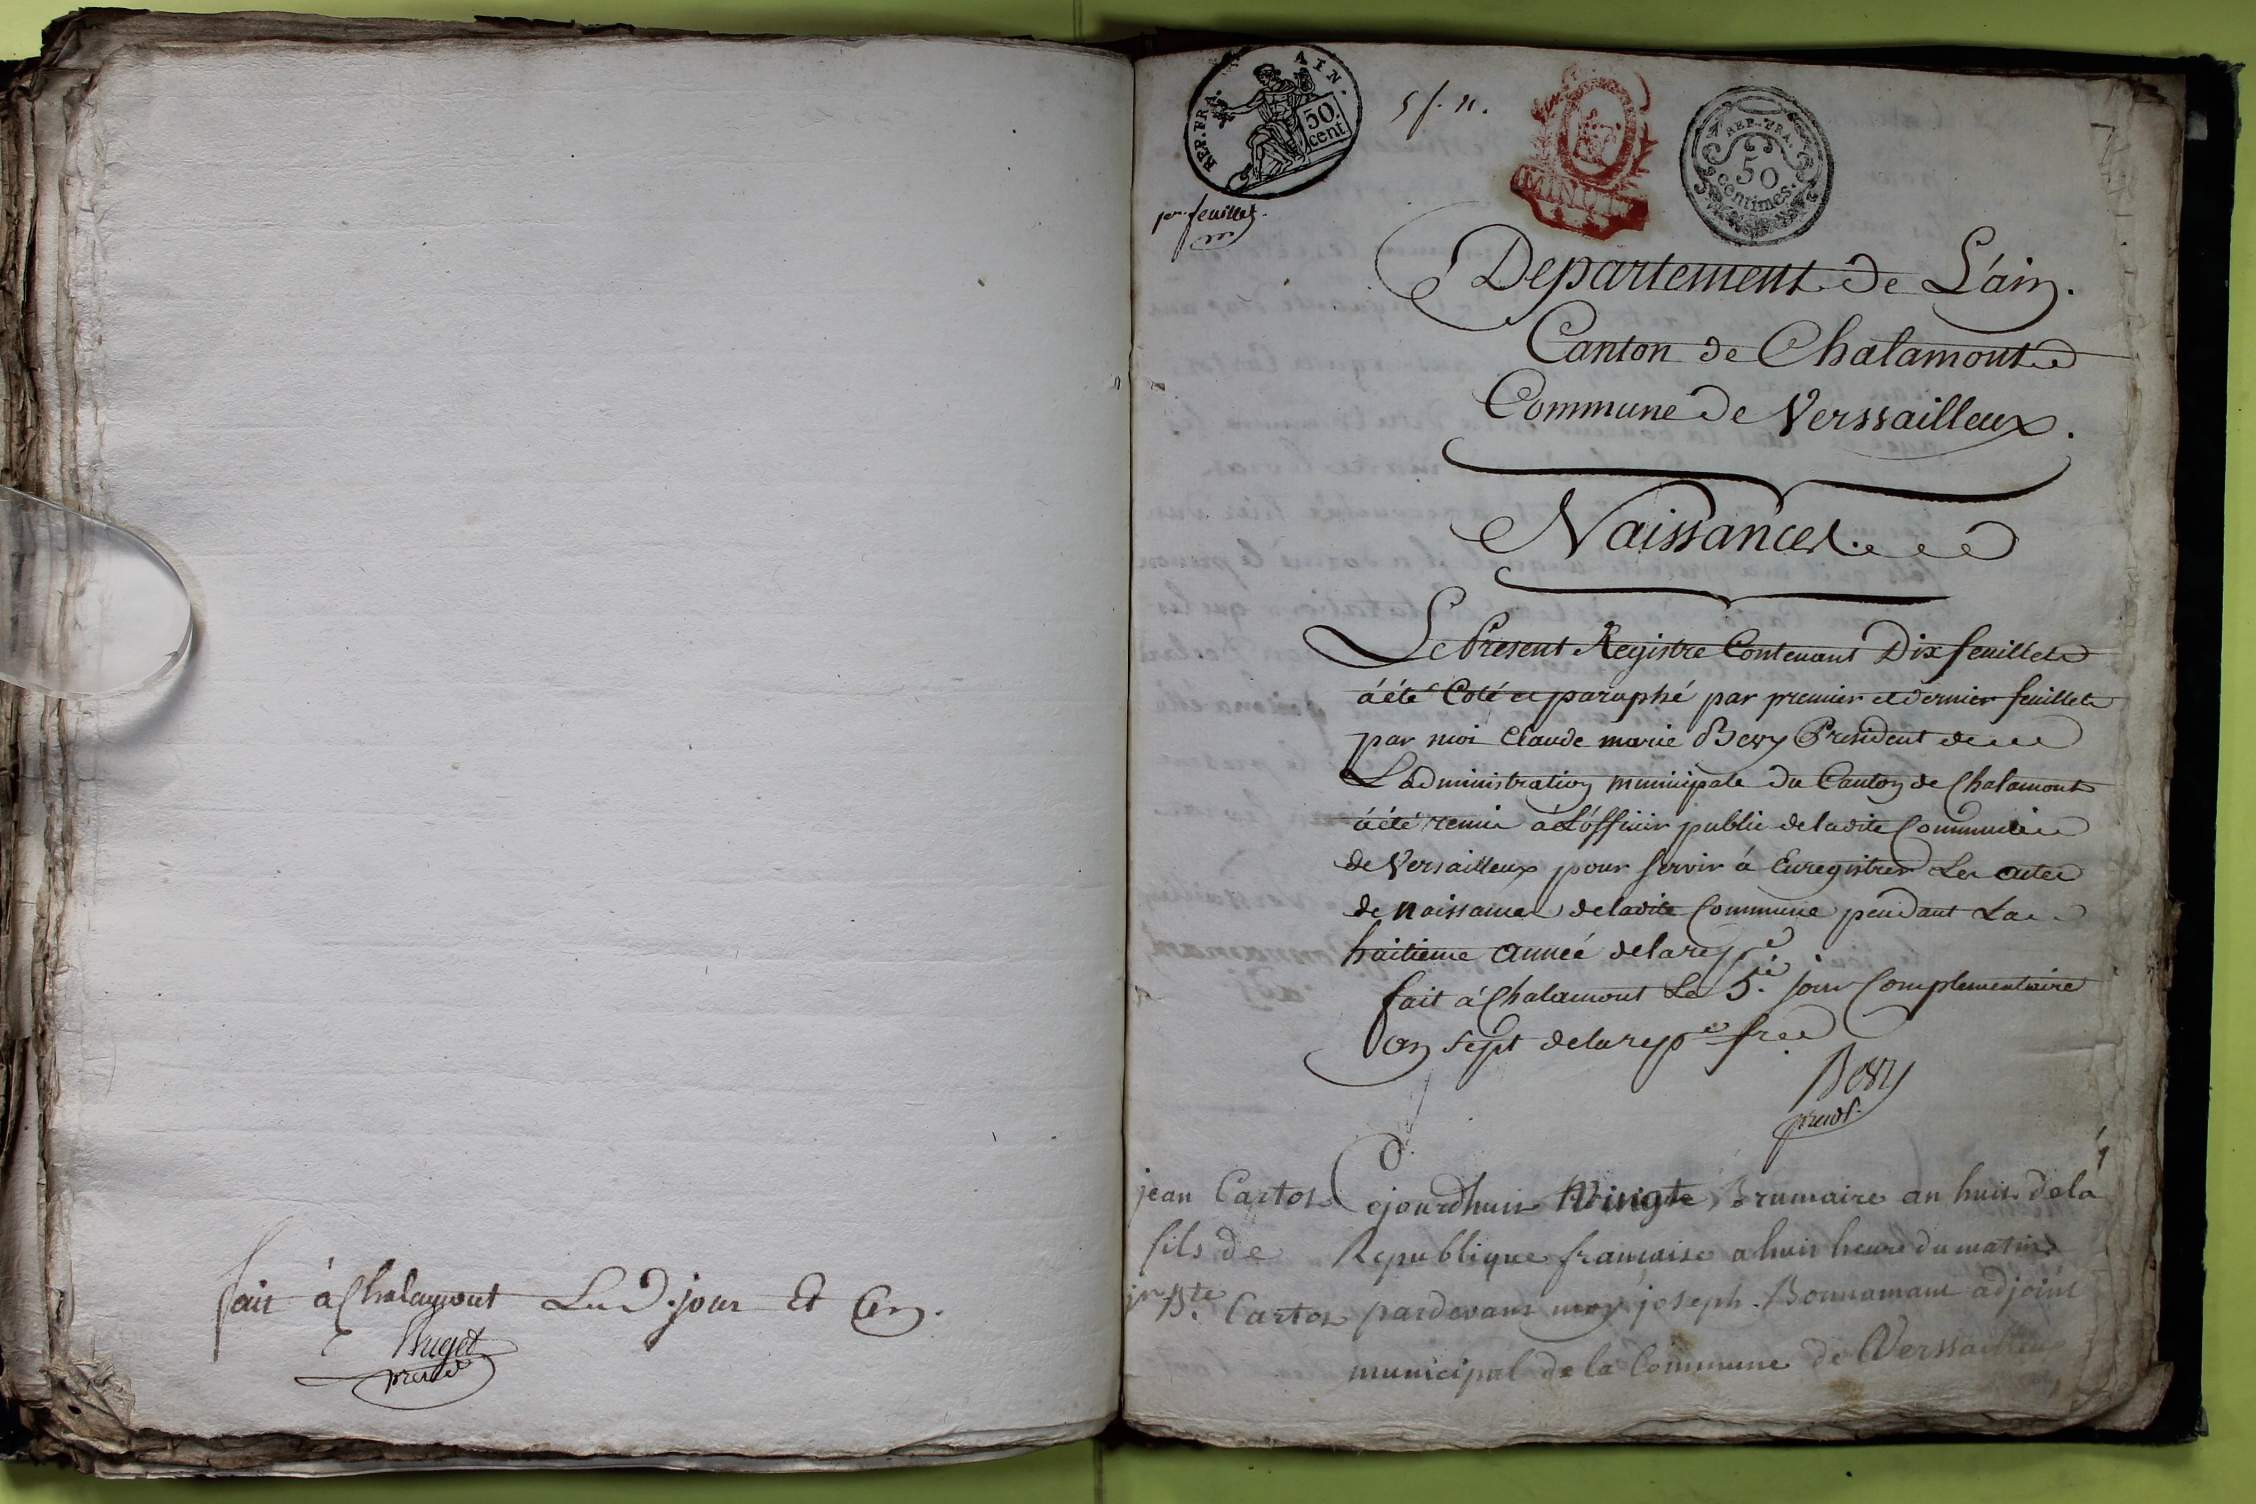 fait à Chalamont Les d. jour Et an.
Buget
presdt
REP. FRA. AIN.
50 cent
5 f. n.
MINUTE
REP. FRA.
50
centimes.
1er feuillet.
Departement de L'ain.
Canton de Chalamont
Commune de Verssailleux.
Naissances.
Le Present Registre Contenant Dix feuillets
à été Coté et paraphé par premier et dernier feuillets
par moi Claude marie Bery President de
L'administration municipale du Canton de Chalamont
à été remis à L'officier public de ladite Commune
de Versailleux pour servir à Enregistrer Les actes
de naissances de ladite Commune pendant La
huitieme année de la repe
fait à Chalamont Le 5e jour Complementaire
an sept de la repe fre
Bery
presdt.
1
jean Cartos
fils de
jn Bte Cartos
Cejourdhuis vingte Brumaire an huit de la
Republique francaise a huit heure du matin
pardevant moy joseph Bonnamant adjoint
municipal de la Commune de Verssailleux